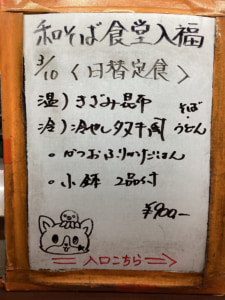 和そば食堂入福
3/10 〈日替定食〉
温）きざみ昆布 そば・
冷）冷やしタヌキ うどん
。かつおふりかけごはん
。小鉢 2品付
¥900-
⇒ 入口こちら ⇒